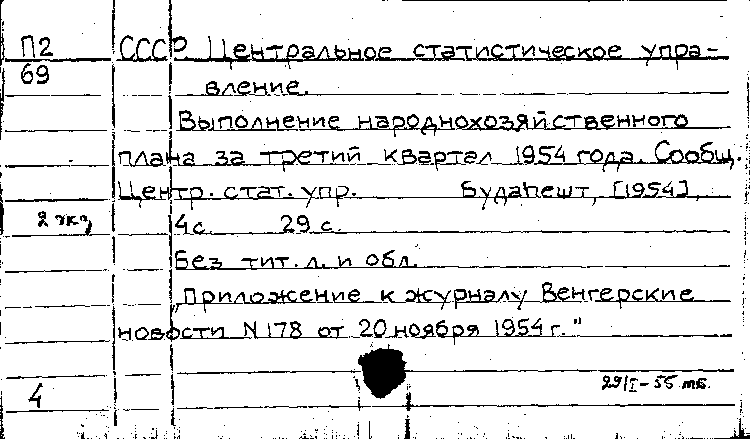 П2 СССР Центральное статистическое упра-
69 вление.
Выполнение народнохозяйственного
плана за третий квартал 1954 года. Сообщ.
Центр. стат. упр. Будапешт, [1954],
2 экз 4 с. 29 с.
Без тит. л. и обл.
„Приложение к журналу Венгерские
новости N 178 от 20 ноября 1954 г."
4 29/I-55 тб.